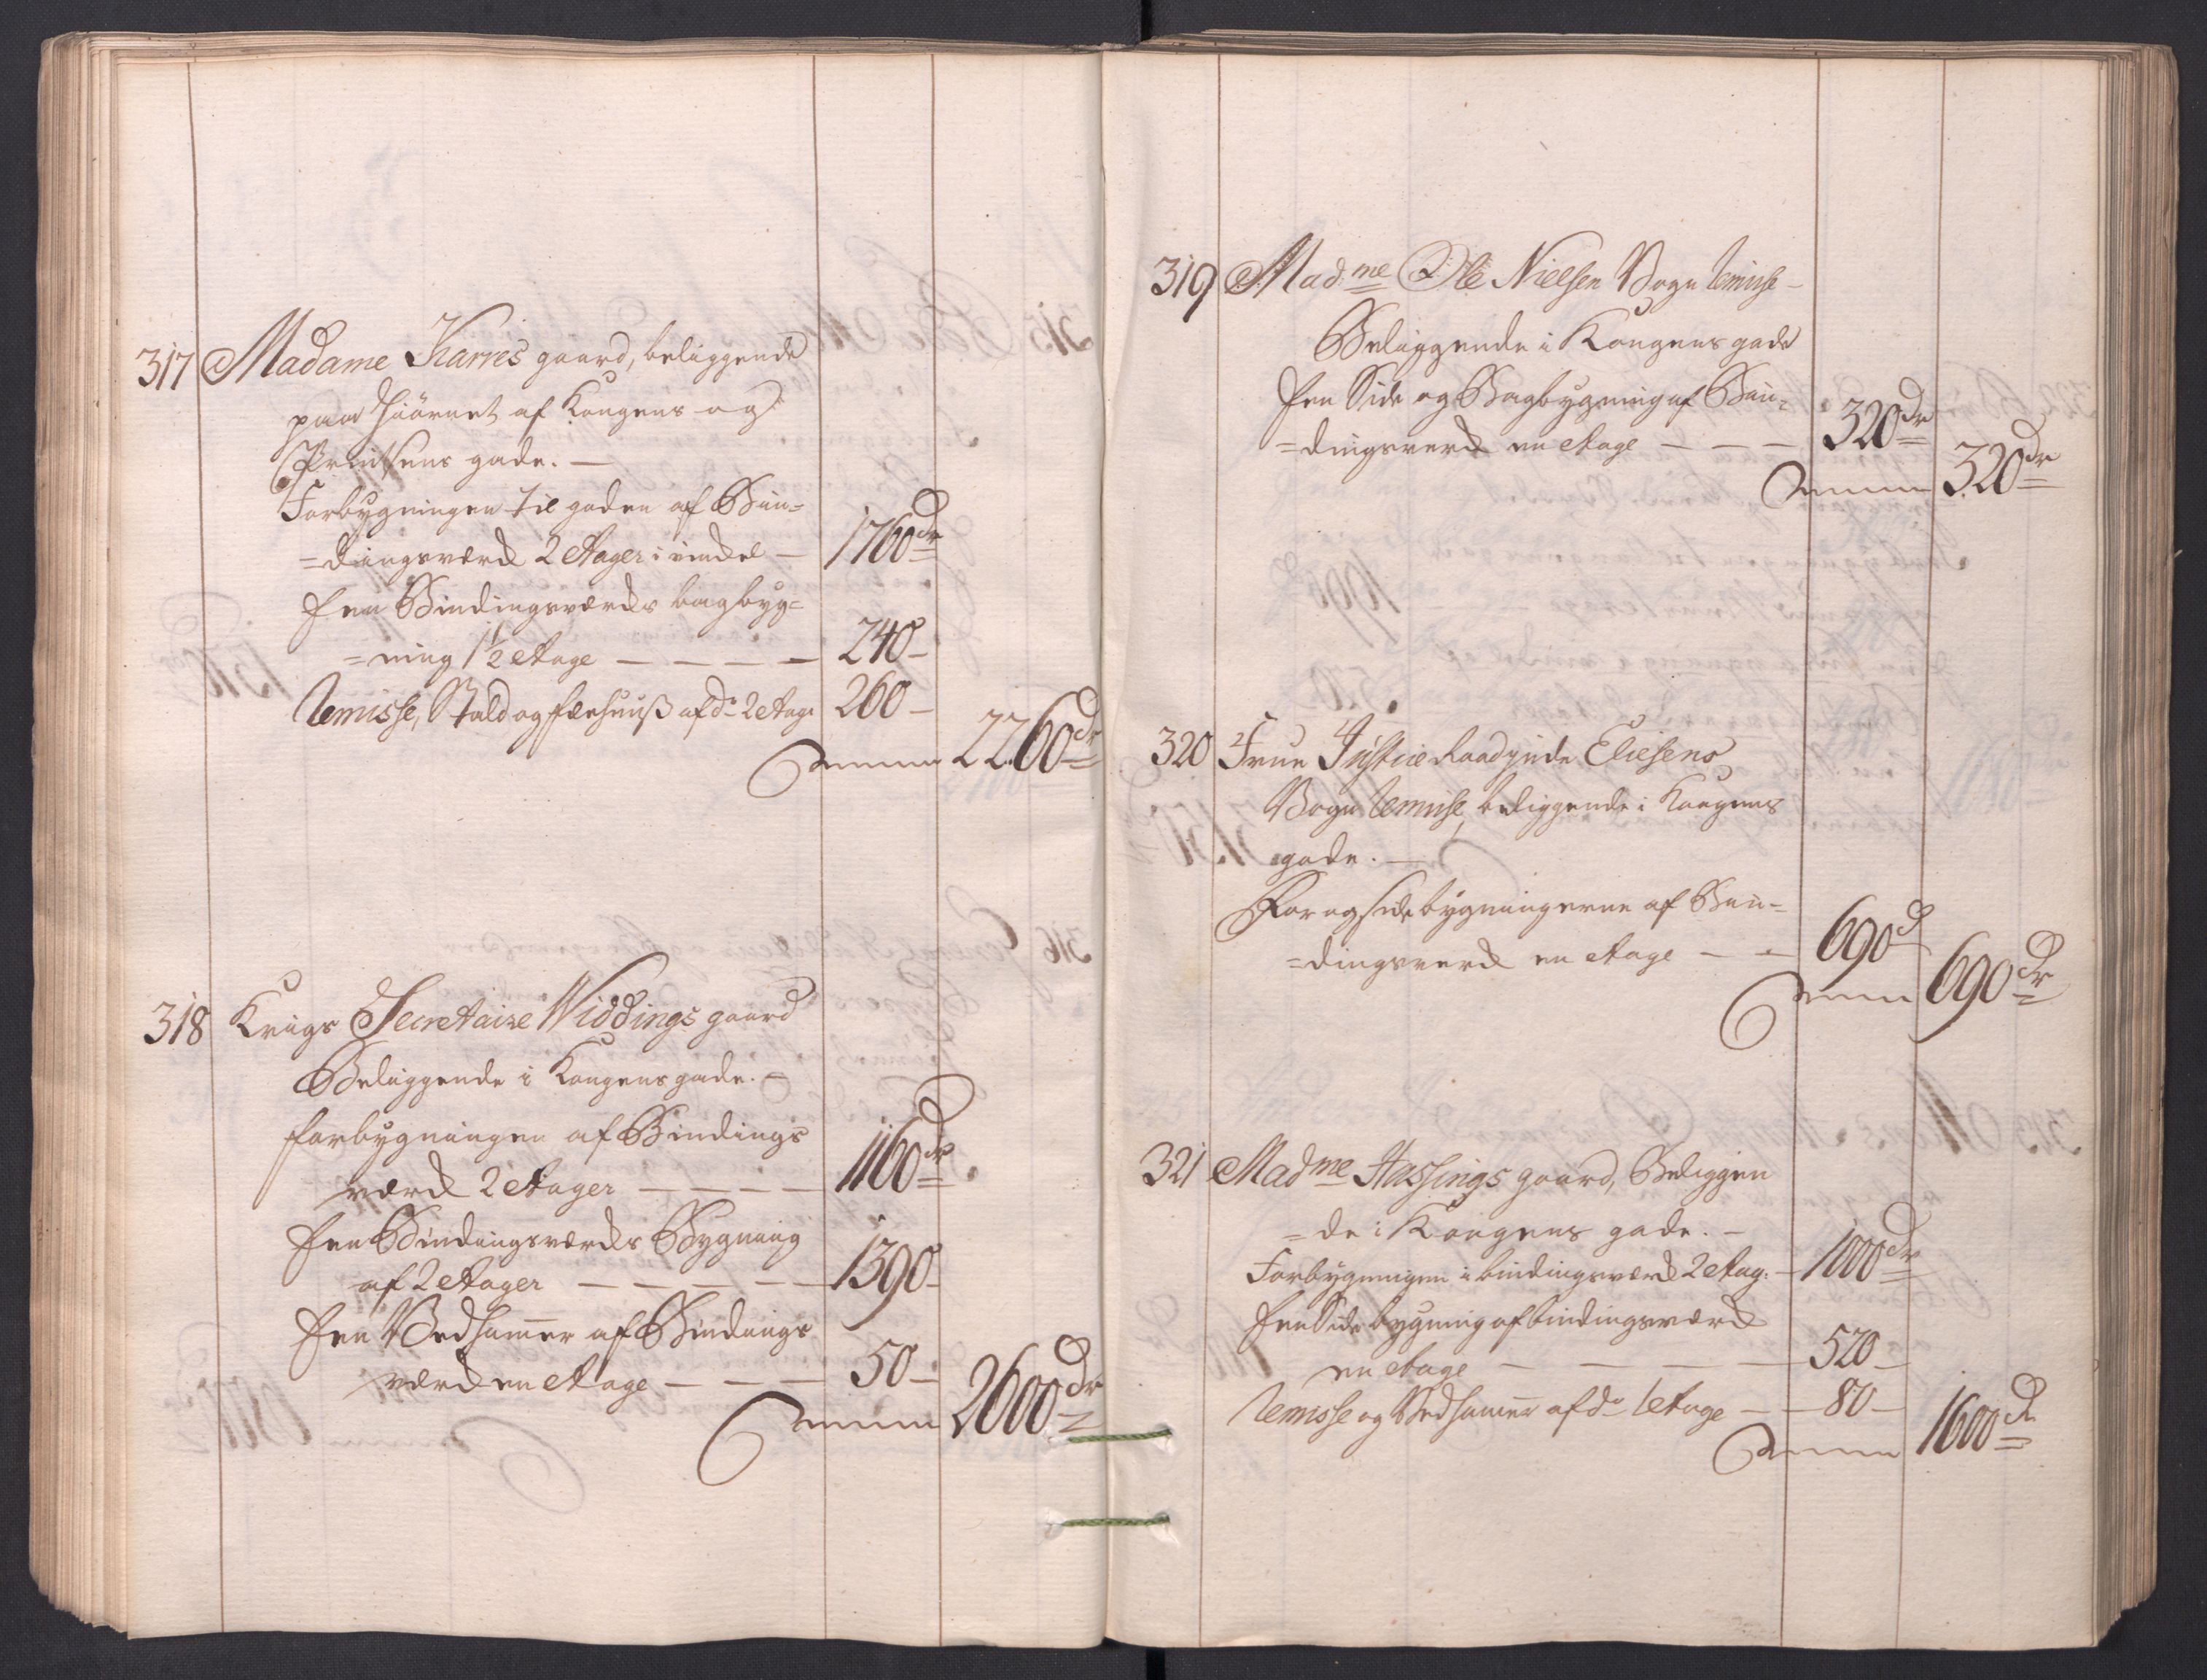 317 Madame Karres gaard, beliggende
paa Hiörnet af Kongens og
Printsens gade. —
Forbygningen til gaden af Bin=
=dingsværck 2 Etager i vinckel — 1760 dr
Een Bindingsværcks bagbyg=
=ning 1½ Etage — — — — 240 —
Remisse, Stald og fæehuuß af do 2 Etage 260 —
Summa 2260 dr
318 Krigs Secretaire Widdings gaard
Beliggende i Kongens gade. —
Forbygningen af Bindings
værck 2 Etager — — — — 1160 dr
Een Bindingsværcks Bygning
af 2 Etager — — — — — 1390 —
Een Vedskamer af Bindings
værck en Etage — — — 50 —
Summa 2600 dr
319 Madme Ole Nielsen Vogn Remisse —
Beliggende i Kongens gade
Een Side og Bagbygning af Bin=
=dingsverck en Etage — — — 320 dr
Summa 320 dr
320 Frue Justice Raadginde Eliesens
Vogn Remise, beliggende i Kongens
gade. —
For og sidebygningerne af Bin=
=dingsverck en Etage — — 690 d
Summa 690 dr
321 Madme Hassings gaard, Beliggen
=de i Kongens gade. —
Forbygningen i bindingsværck 2 Etag. — 1000 dr
Een Side bygning af bindingsværck
en Etage — — — — 520 —
Remisse og Vedskamer af do 1 Etage — — 80 —
Summa 1600 dr